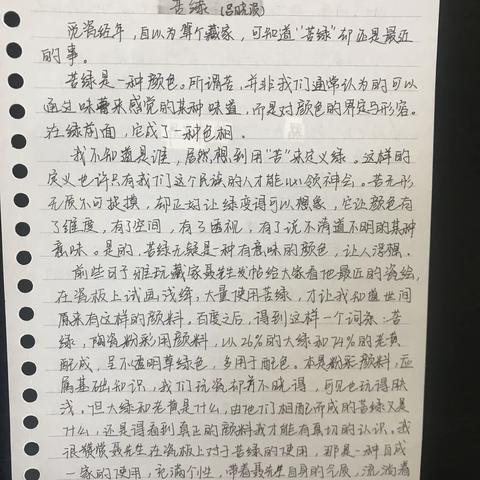 苦绿 (吕晓涢)
觅瓷经年，自以为算个藏家，可知道“苦绿”却还是最近
的事。
苦绿是一种颜色。所谓苦，并非我们通常认为的可以
通过味蕾来感觉的某种味道，而是对颜色的界定与形容。
在绿前面，它成了一种色相。
我不知道是谁，居然想到用“苦”来定义绿。这样的
定义也许只有我们这个民族的人才能心领神会。苦无形
无质不可捉摸，却正好让绿变得可以想象，它让颜色有
了维度，有了空间，有了透视，有了说不清道不明的某种
意味。是的，苦绿无疑是一种有意味的颜色，让人遐想。
前些日子雅玩藏家聂先生发帖给大家看他最近的瓷绘，
在瓷板上试画浅绛，大量使用苦绿，才让我知道世间
原来有这样的颜料。百度之后，得到这样一个词条：苦
绿，陶瓷粉彩用颜料，以26%的大绿和74%的老黄
配成，呈不透明草绿色，多用于配色。本是粉彩颜料，应
属基础知识，我们玩瓷却着不晓得，可见也玩得肤
浅。但大绿和老黄是什么，由他们相配而成的苦绿又是
什么，还是得看到真正的颜料我才能有真切的认识。我
很猥狻聂先生在瓷板上对于苦绿的使用，那是一种自成
一家的使用，充满个性，带着聂先生自身的气质，流淌着